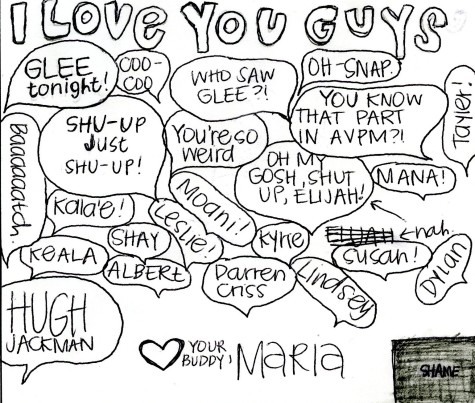 I LOVE YOU GUYS
GLEE
tonight!
COO-
COO
WHO SAW
GLEE?!
OH-SNAP.
YOU KNOW
THAT PART
IN AVPM?!
Tayler!
Baaaaaatch.
SHU-UP
Just
SHU-UP!
You're so
weird
OH MY
GOSH, SHUT
UP, ELIJAH!
MANA!
Kala'e!
Leslie!
Moani!
Kyrie
ELIJAH
nah.
SHAY
KEALA
ALBERT
Darren
Criss
Lindsey
Susan!
DYLAN
HUGH
JACKMAN
YOUR
BUDDY,
MARIA
SHAME